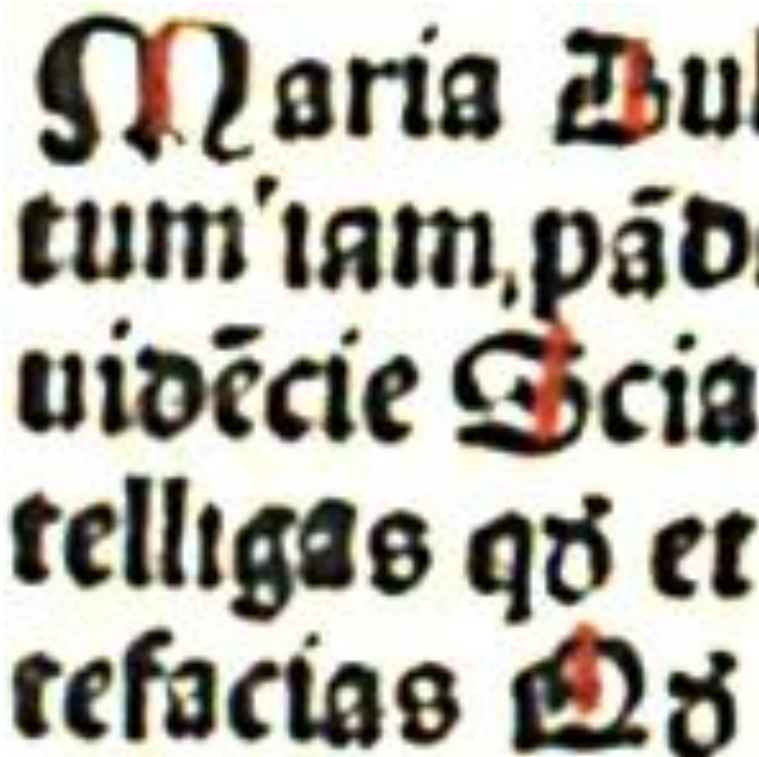 Maria Bul
tum'iam,pãd
uidẽcie Scia
telligas qđ et
tefacias Qđ